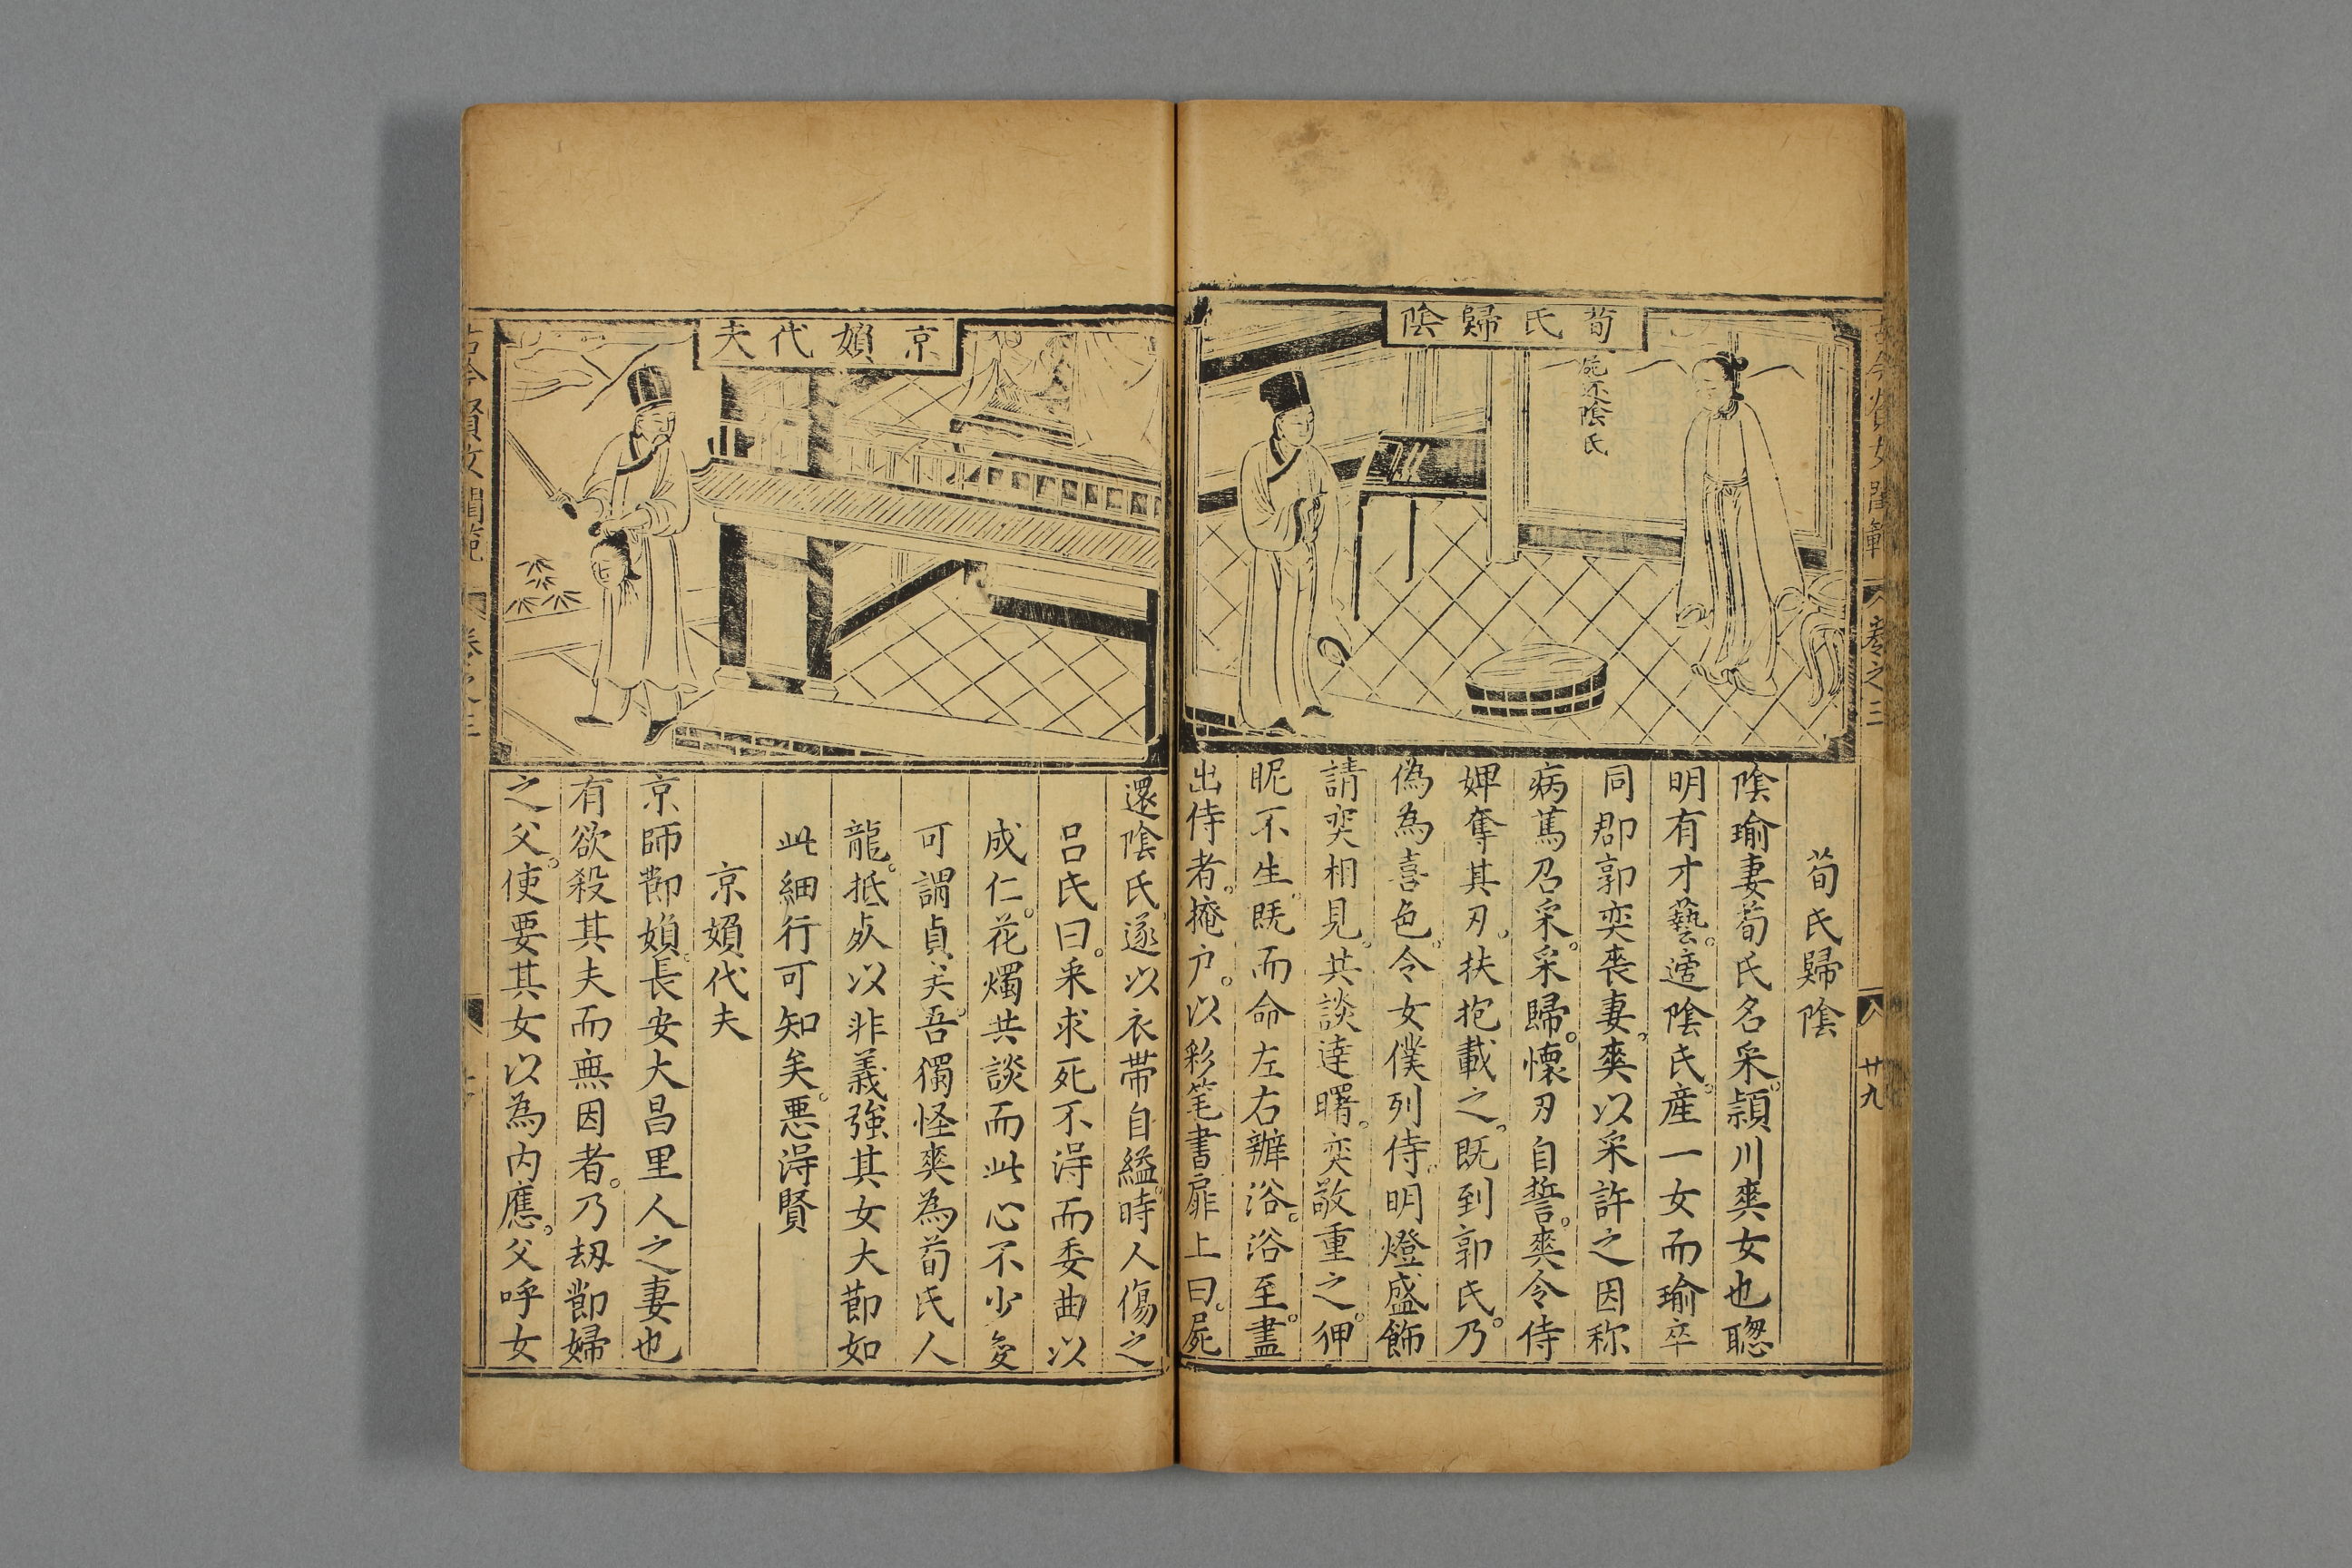 荀氏歸陰
屍还陰氏
荀氏歸陰
陰瑜妻荀氏名采。頴川爽女也聦
明有才藝。適陰氏。產一女而瑜卒
同郡郭奕喪妻。爽以采許之因称
病篤召采。采歸。懷刃自誓。爽令侍
婢奪其刃。扶抱載之。既到郭氏。乃
偽為喜色。令女僕列侍。明燈盛飾
請奕相見。共談達曙。奕敬重之。狎
昵不生。既而命左右辦浴。浴至。盡
出侍者。掩户。以彩笔書扉上曰。屍
卷之三
廿九
京嬪代夫
還陰氏。遂以衣帶自縊。時人傷之
吕氏曰。采求死不淂而委曲以
成仁。花燭共談而此心不少変
可謂貞矣。吾獨怪爽為荀氏人
龍。抵死以非義強其女大節如
此細行可知矣。悪淂賢
京嬪代夫
京師節嬪。長安大昌里人之妻也
有欲殺其夫而無因者。乃刼節婦
之父。使要其女以為内應。父呼女